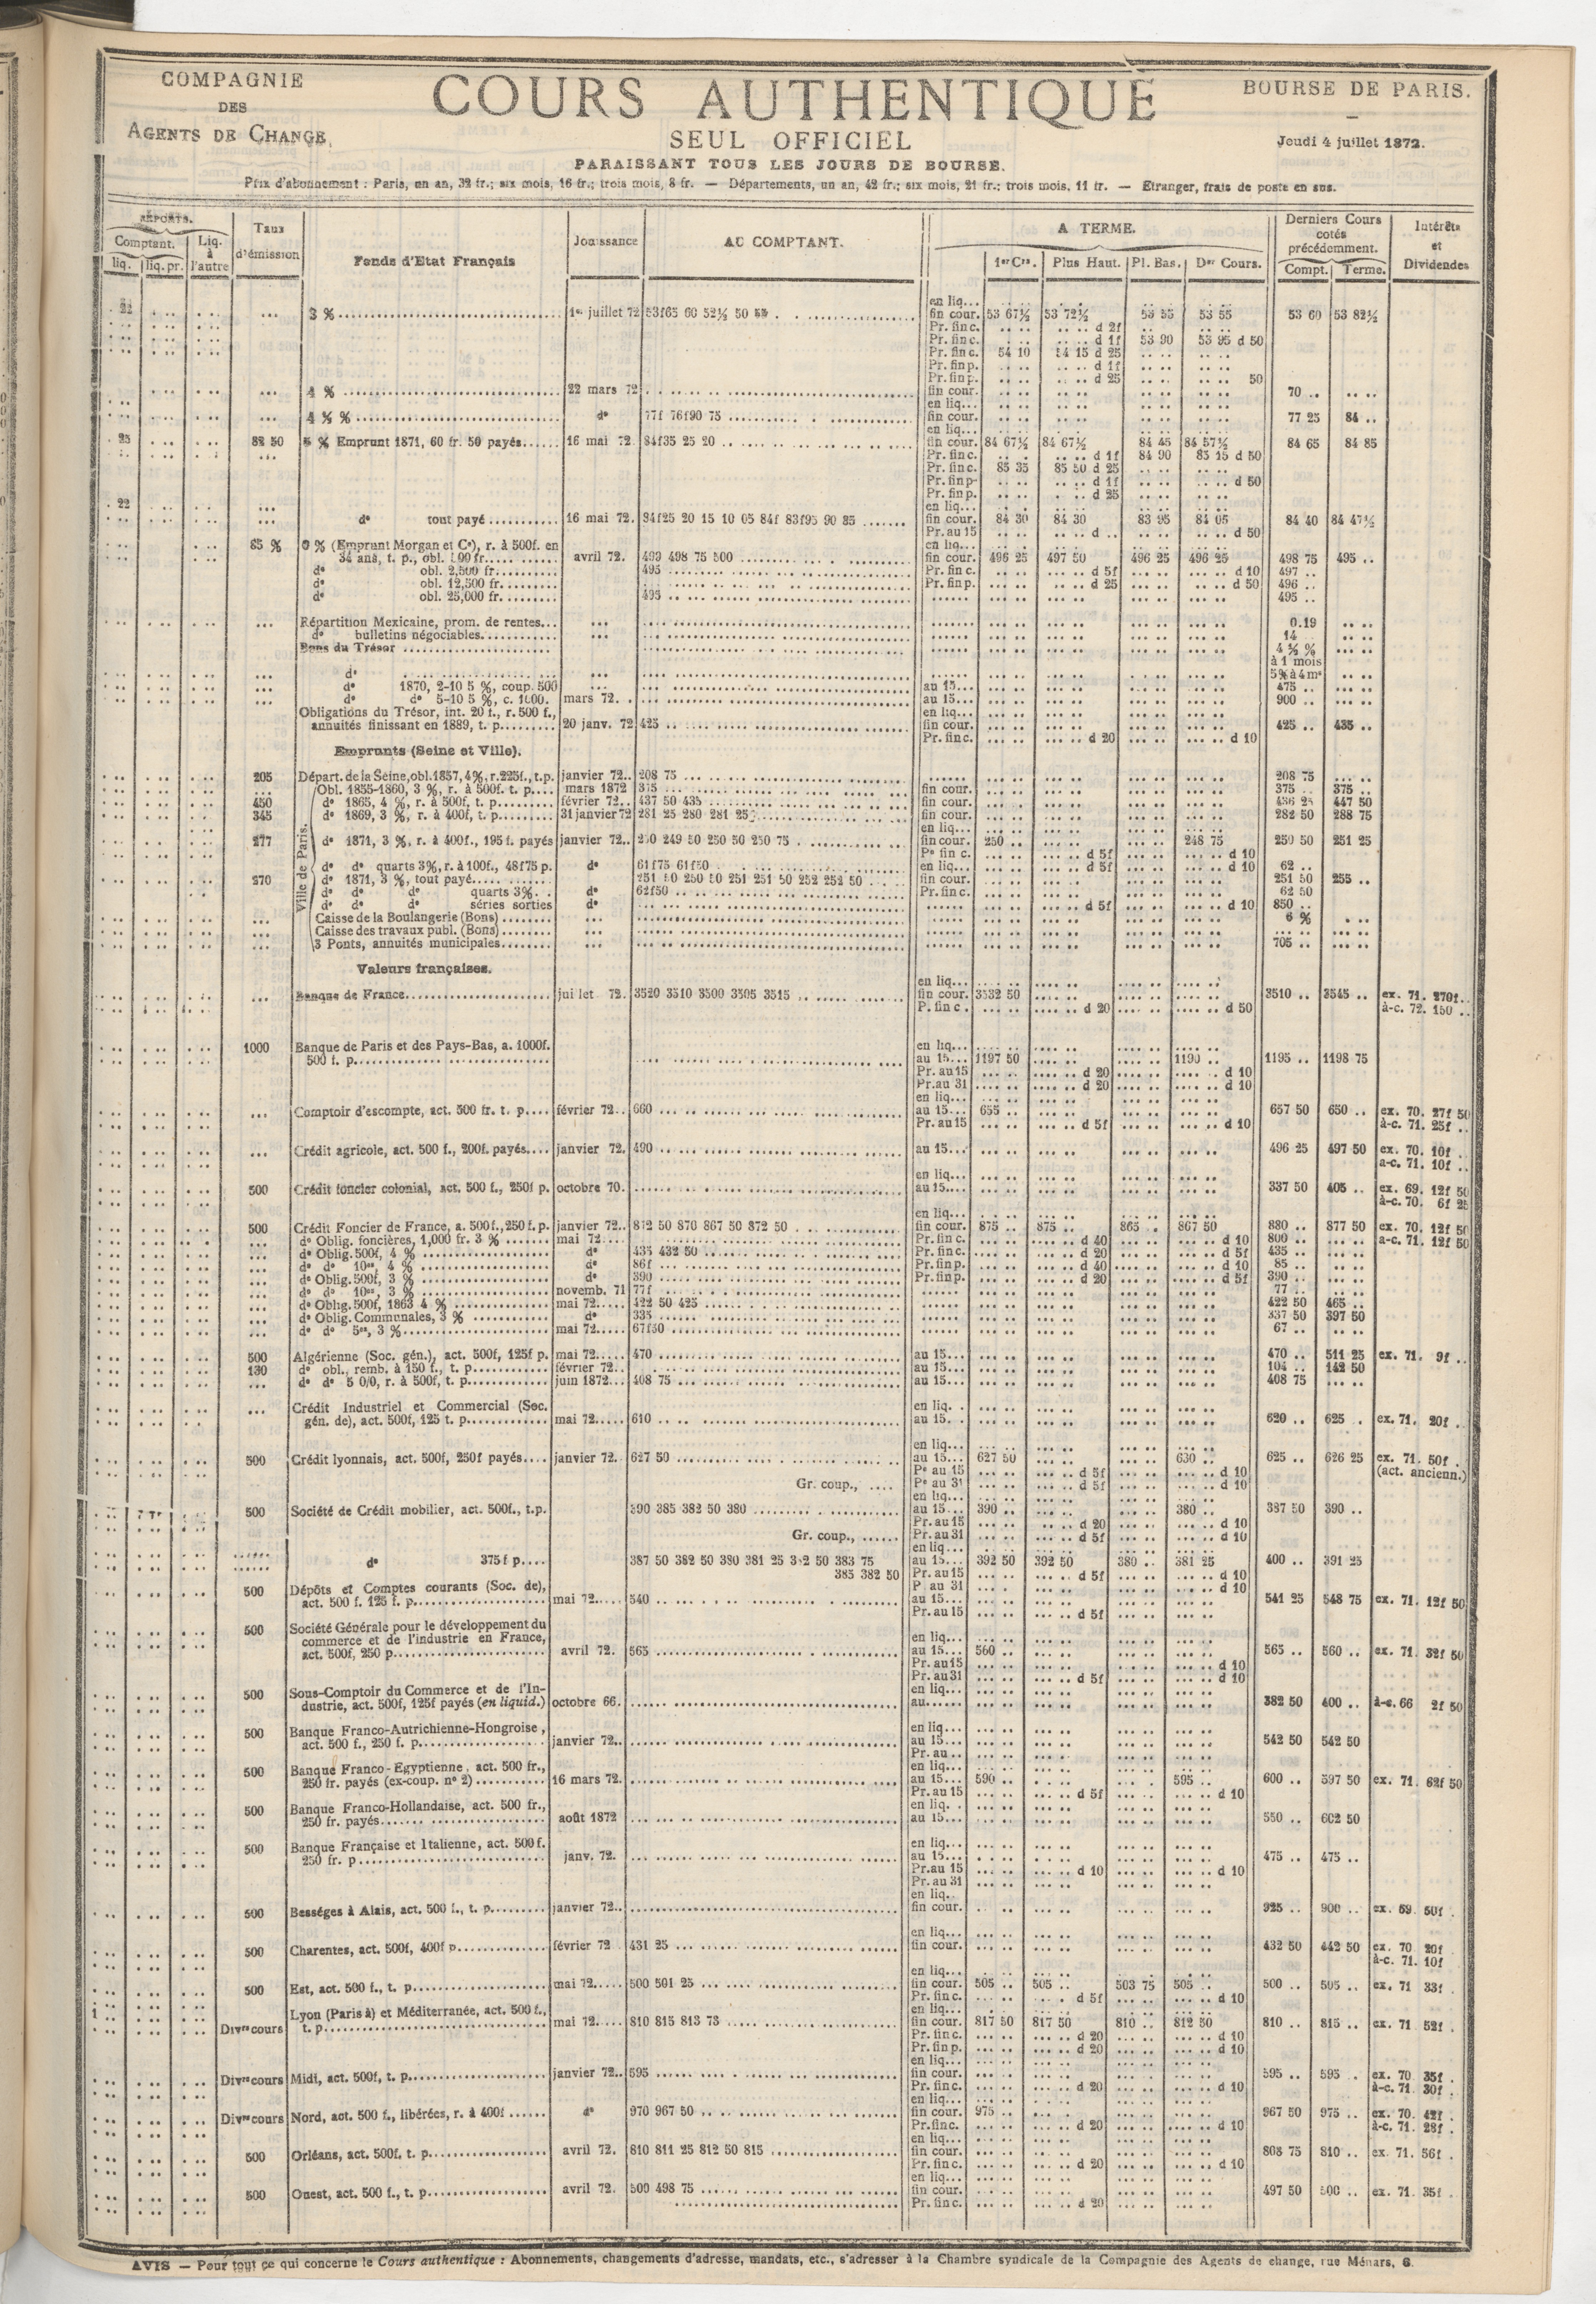 COMPAGNIE
DES
AGENTS DE CHANGE
COURS AUTHENTIQUE
SEUL OFFICIEL
PARAISSANT TOUS LES JOURS DE BOURSE.
BOURSE DE PARIS.
Jeudi 4 juillet 1872.
Prix d'abonnement : Paris, un an, 32 fr.; six mois, 16 fr.; trois mois, 8 fr. — Départements, un an, 42 fr.; six mois, 21 fr.; trois mois, 11 fr. — Etranger, frais de poste en sus.
REPORTS.
Comptant. Liq. à l'autre
liq. liq. pr.
Taux d'émission
Fonds d'Etat Français
Jouissance
AU COMPTANT.
A TERME.
1er Crs. Plus Haut. Pl. Bas. Der Cours.
Derniers Cours cotés précédemment.
Compt. Terme.
Intérêts et Dividendes
3 % 1er juillet 72 53f65 60 52½ 50 fin cour. 53 67½ 53 72½ 53 55 53 55 53 60 53 82½
Pr. fin c. d 2f
Pr. fin c. d 1f 53 90 53 95 d 50
Pr. fin c. 54 10 54 15 d 25
Pr. fin p. d 1f
Pr. fin p. d 25 50
4 % 22 mars 72 fin cour. 70
4 ½ % d° 77f 76f90 75 fin cour. 77 25 84
82 50 5 % Emprunt 1871, 60 fr. 50 payés 16 mai 72. 84f35 25 20 fin cour. 84 67½ 84 67½ 84 45 84 57½ 84 65 84 85
Pr. fin c. d 1f 84 90 85 15 d 50
Pr. fin c. 85 35 85 50 d 25
Pr. fin p. d 1f d 50
Pr. fin p. d 25
d° tout payé 16 mai 72. 84f25 20 15 10 05 84f 83f95 90 85 fin cour. 84 30 84 30 83 95 84 05 84 40 84 47½
Pr. au 15 d d 50
85 % 6 % (Emprunt Morgan et Ce), r. à 500f. en
34 ans, t. p., obl. 500 fr. avril 72. 499 498 75 500 fin cour. 496 25 497 50 496 25 496 25 498 75 495
d° obl. 2,500 fr. 495 Pr. fin c. d 5f d 10 497
d° obl. 12,500 fr. Pr. fin p. d 25 d 50 496
d° obl. 25,000 fr. 495 495
Répartition Mexicaine, prom. de rentes 0.19
d° bulletins négociables 14
Bons du Trésor 4 ½ %
à 1 mois
d° 5% à 4 ms
d° 1870, 2-10 5 %, coup. 500 au 15 475
d° d° 5-10 5 %, c. 1000. mars 72. au 15 900
Obligations du Trésor, int. 20 f., r. 500 f., en liq.
annuités finissant en 1889, t. p. 20 janv. 72 425 fin cour. 425 435
Pr. fin c. d 20 d 10
Emprunts (Seine et Ville).
205 Départ. de la Seine, obl. 1857, 4%, r. 225f., t.p. janvier 72 208 75 208 75
Ville de Paris.
Obl. 1855-1860, 3 %, r. à 500f. t. p. mars 1872 375 fin cour. 375 375
450 d° 1865, 4 %, r. à 500f, t. p. février 72 437 50 435 fin cour. 436 25 447 50
345 d° 1869, 3 %, r. à 400f, t. p. 31 janvier 72 281 25 280 281 25 fin cour. 282 50 288 75
277 d° 1871, 3 %, r. à 400f., 195 f. payés janvier 72 250 249 50 250 50 250 75 fin cour. 250 248 75 250 50 251 25
Pe fin c. d 5f d 10
d° d° quarts 3%, r. à 100f., 48f75 p. d° 61f75 61f50 en liq. d 5f d 10 62
270 d° 1871, 3 %, tout payé 251 50 250 50 251 251 50 252 252 50 fin cour. 251 50 255
d° d° d° quarts 3% d° 62f50 Pr. fin c. 62 50
d° d° d° séries sorties d° d 5f d 10 850
Caisse de la Boulangerie (Bons) 6 %
Caisse des travaux publ. (Bons)
3 Ponts, annuités municipales 705
Valeurs françaises.
Banque de France juillet 72. 3520 3510 3500 3505 3515 fin cour. 3532 50 3510 3545 ex. 71. 270f
P. fin c. d 20 d 50 à-c. 72. 150
1000 Banque de Paris et des Pays-Bas, a. 1000f.
500 f. p. au 15 1197 50 1190 1195 1198 75
Pr. au 15 d 20 d 10
Pr. au 31 d 20 d 10
Comptoir d'escompte, act. 500 fr. t. p. février 72 660 au 15 655 657 50 650 ex. 70. 27f 50
Pr. au 15 d 5f d 10 à-c. 71. 25f
Crédit agricole, act. 500 f., 200f. payés janvier 72. 490 au 15 496 25 497 50 ex. 70. 10f
a-c. 71. 10f
500 Crédit foncier colonial, act. 500 f., 250f p. octobre 70. au 15 337 50 405 ex. 69. 12f 50
à-c. 70. 6f 25
500 Crédit Foncier de France, a. 500 f., 250 f. p. janvier 72 872 50 870 867 50 872 50 fin cour. 875 875 865 867 50 880 877 50 ex. 70. 12f 50
d° Oblig. foncières, 1,000 fr. 3 % mai 72 Pr. fin c. d 40 d 10 800 a-c. 71. 12f 50
d° Oblig. 500f, 4 % d° 435 432 50 Pr. fin c. d 20 d 5f 435
d° d° 10es, 4 % d° 86f Pr. fin p. d 40 d 10 85
d° Oblig. 500f, 3 % d° 390 Pr. fin p. d 20 d 5f 390
d° d° 10es, 3 % novemb. 71 77f 77
d° Oblig. 500f, 1863 4 % mai 72 422 50 425 422 50 465
d° Oblig. Communales, 3 % d° 335 337 50 397 50
d° d° 5es, 3 % mai 72 67f50 67
500 Algérienne (Soc. gén.), act. 500f, 125f p. mai 72 470 au 15 470 511 25 ex. 71. 9f
130 d° obl., remb. à 150 f., t. p. février 72 au 15 104 142 50
d° d° 5 0/0, r. à 500f, t. p. juin 1872 408 75 au 15 408 75
Crédit Industriel et Commercial (Soc. en liq.
gén. de), act. 500f, 125 t. p. mai 72 610 au 15. 620 625 ex. 71. 20f
500 Crédit lyonnais, act. 500f, 250f payés janvier 72. 627 50 au 15 627 50 630 625 626 25 ex. 71. 50f
Pe au 15 d 5f d 10 (act. ancienn.)
Gr. coup., Pe au 31 d 5f d 10
500 Société de Crédit mobilier, act. 500f., t.p. 390 385 382 50 380 au 15 390 380 387 50 390
Pr. au 15 d 20 d 10
Gr. coup., Pr. au 31 d 5f d 10
d° 375 f p. 387 50 382 50 380 381 25 382 50 383 75 au 15 392 50 392 50 380 381 25 400 391 25
385 382 50 Pr. au 15 d 5f d 10
P. au 31 d 10
500 Dépôts et Comptes courants (Soc. de),
act. 500 f. 125 f. p. mai 72 540 au 15 541 25 548 75 ex. 71. 12f 50
Pr. au 15 d 5f
500 Société Générale pour le développement du
commerce et de l'industrie en France, en liq.
act. 500f, 250 p. avril 72. 565 au 15 560 565 560 ex. 71. 32f 50
Pr. au 15 d 10
Pr. au 31 d 5f d 10
500 Sous-Comptoir du Commerce et de l'In- en liq.
dustrie, act. 500f, 125f payés (en liquid.) octobre 66. au 382 50 400 à-c. 66 2f 50
500 Banque Franco-Autrichienne-Hongroise, en liq.
act. 500 f., 250 f. p. janvier 72 au 15 542 50 542 50
Pr. au
500 Banque Franco-Egyptienne, act. 500 fr., en liq.
250 fr. payés (ex-coup. n° 2) 16 mars 72. au 15 590 595 600 597 50 ex. 71. 62f 50
Pr. au 15 d 5f d 10
500 Banque Franco-Hollandaise, act. 500 fr., en liq.
250 fr. payés août 1872 au 15 550 602 50
500 Banque Française et Italienne, act. 500 f. en liq.
250 fr. p. janv. 72. au 15 475 475
Pr. au 15 d 10 d 10
Pr. au 31
500 Bességes à Alais, act. 500 f., t. p. janvier 72 fin cour. 925 900 ex. 69. 50f
500 Charentes, act. 500f, 400f p. février 72 431 25 fin cour. 432 50 442 50 ex. 70. 20f
à-c. 71. 10f
500 Est, act. 500 f., t. p. mai 72 500 501 25 fin cour. 505 505 503 75 505 500 505 ex. 71 33f
Pr. fin c. d 5f d 10
Lyon (Paris à) et Méditerranée, act. 500 f., en liq.
Divrs cours t. p. mai 72 810 815 813 75 fin cour. 817 50 817 50 810 812 50 810 815 ex. 71 52f
Pr. fin c. d 20 d 10
Pr. fin p. d 20 d 10
Divrs cours Midi, act. 500f, t. p. janvier 72 595 fin cour. 595 595 ex. 70. 35f
Pr. fin c. d 20 d 10 à-c. 71. 30f
Divrs cours Nord, act. 500 f., libérées, r. à 400f d° 970 967 50 fin cour. 975 967 50 975 ex. 70. 42f
Pr. fin c. d 20 d 10 à-c. 71. 28f
500 Orléans, act. 500f, t. p. avril 72. 810 811 25 812 50 815 fin cour. 808 75 810 ex. 71. 56f
Pr. fin c. d 20 d 10
500 Ouest, act. 500 f., t. p. avril 72. 500 498 75 fin cour. 497 50 500 ex. 71. 35f
Pr. fin c. d 20
AVIS — Pour tout ce qui concerne le Cours authentique : Abonnements, changements d'adresse, mandats, etc., s'adresser à la Chambre syndicale de la Compagnie des Agents de change, rue Ménars, 6.